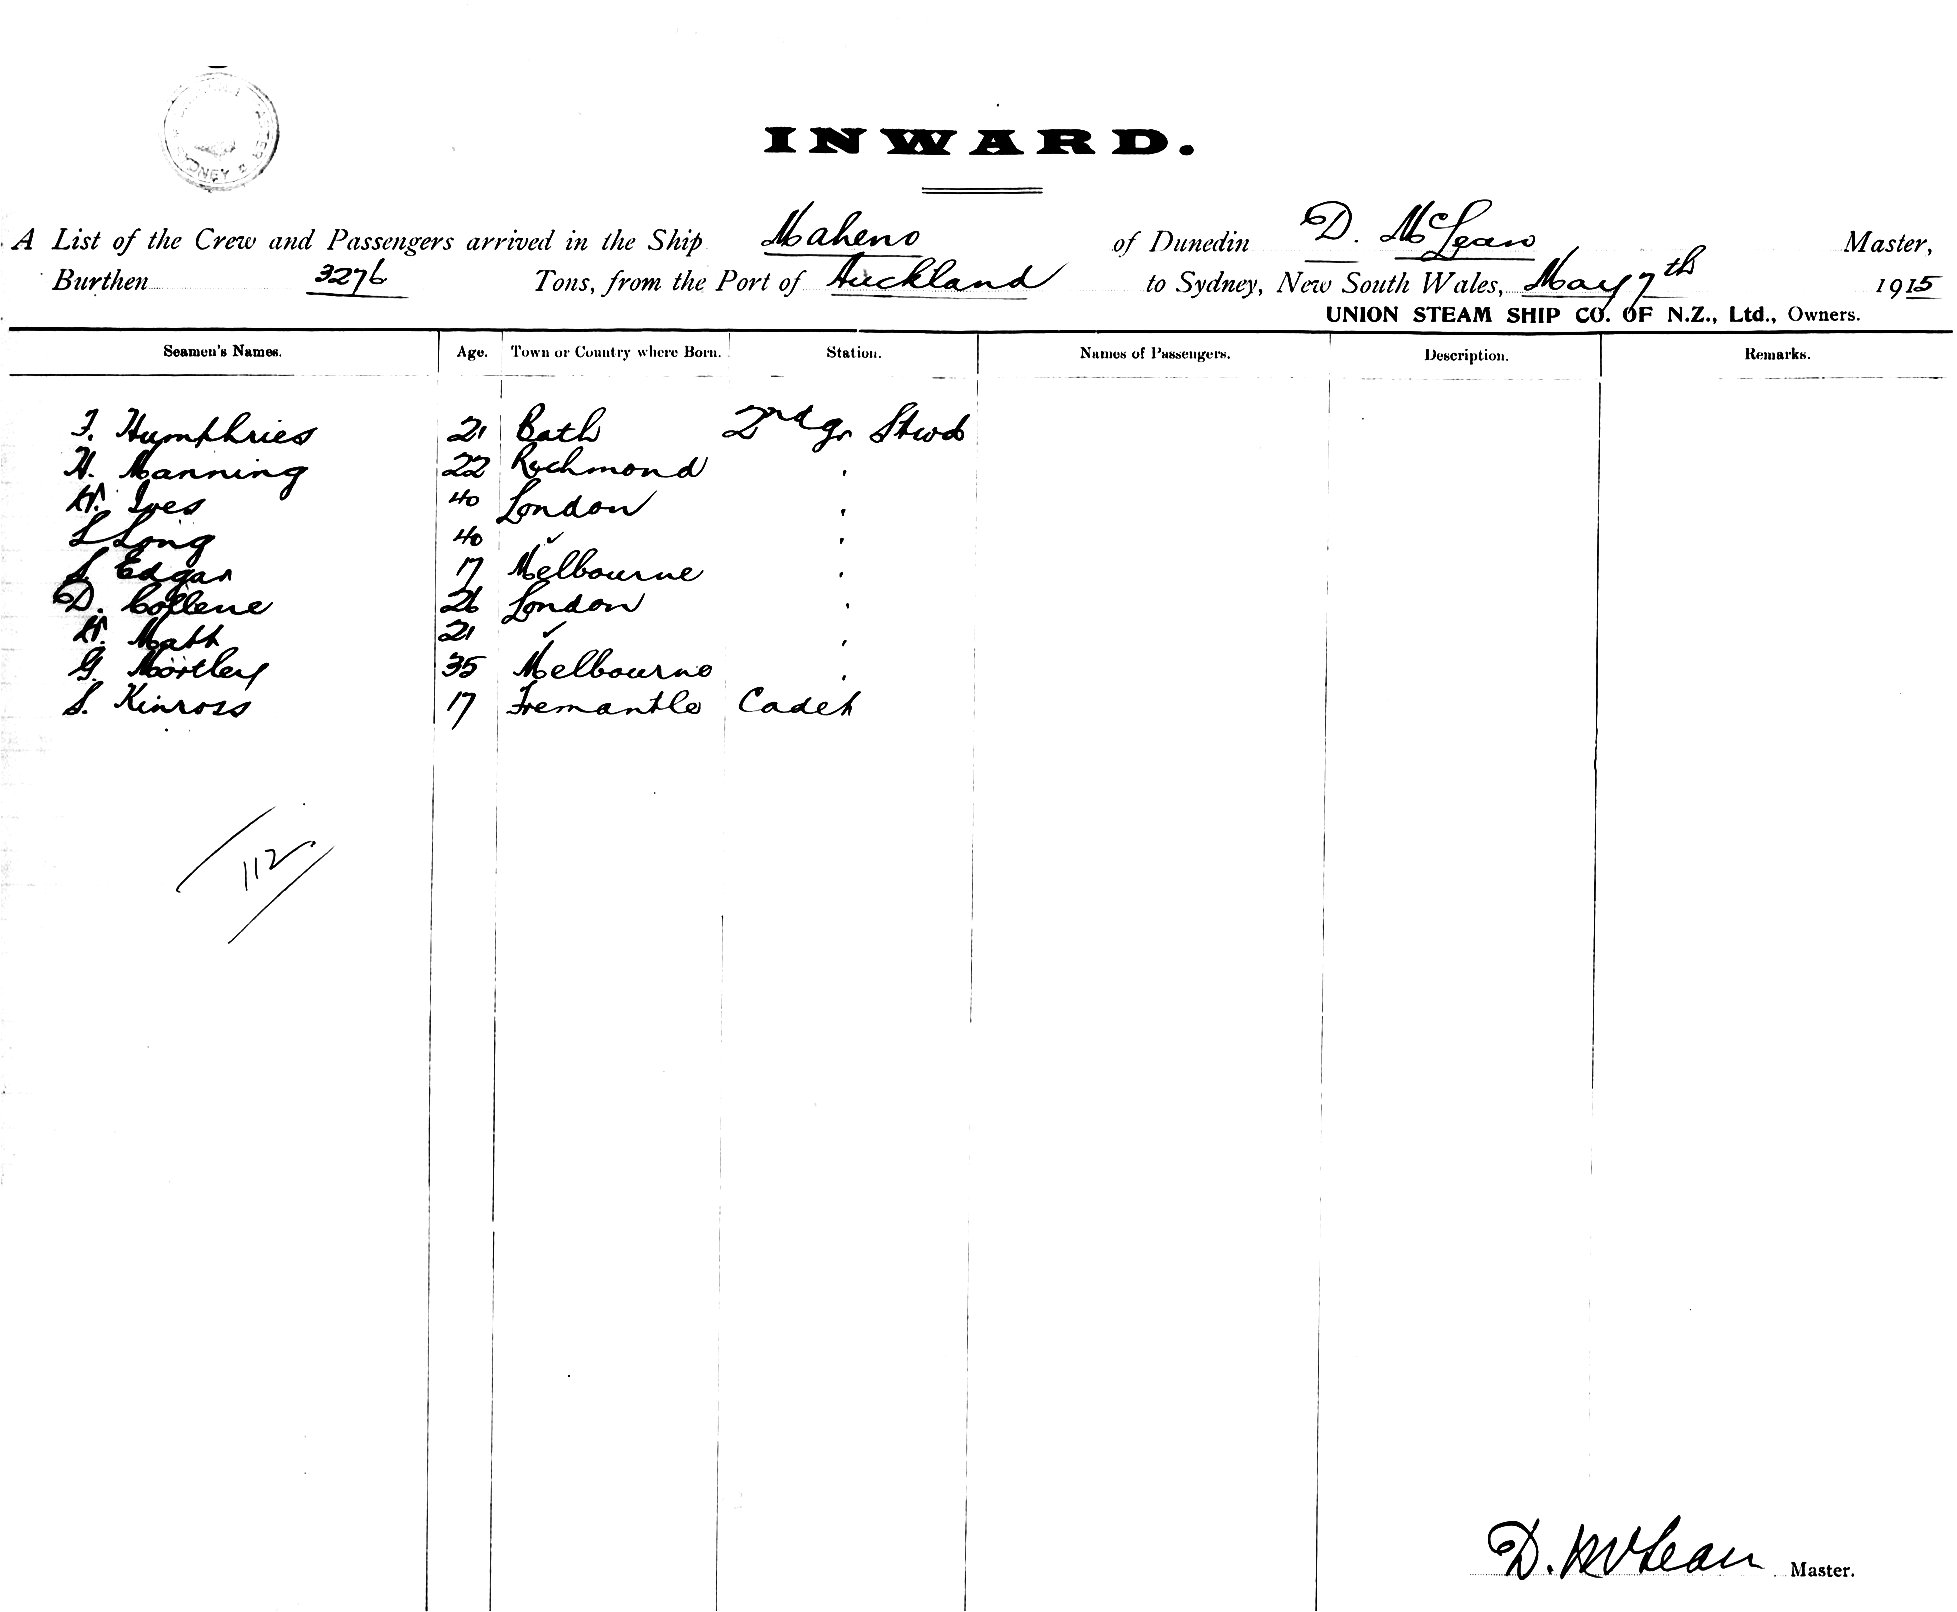 INWARD.
A List of the Crew and Passengers arrived in the Ship Maheno of Dunedin D. McLean Master,
Burthen 3276 Tons, from the Port of Auckland to Sydney, New South Wales, May 7th 1915
UNION STEAM SHIP CO. OF N.Z., Ltd., Owners.
Seamen's Names. Age. Town or Country where Born. Station. Names of Passengers. Description. Remarks.
F. Humphries 21 Bath 2nd gr Stwd
H. Manning 22 Richmond '
H. Ives 40 London '
L Long 40 ✓ '
S. Edgar 17 Melbourne '
D. Collene 26 London '
H. Matt 21 ✓ '
G. Mortley 35 Melbourne '
S. Kinross 17 Fremantle Cadet
112
D. McLean Master.